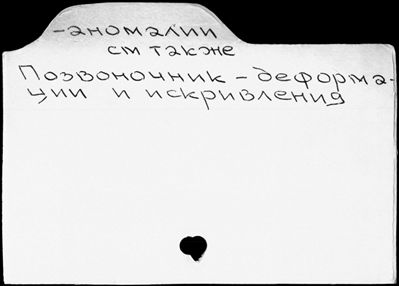 -аномалии
см также
Позвоночник - деформа-
ции и искривления